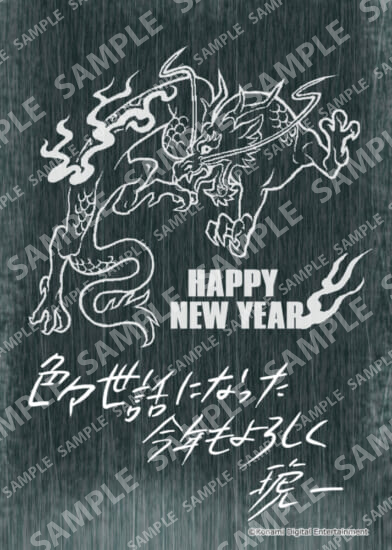 HAPPY
NEW YEAR
色々世話になった
今年もよろしく
琥一
©Konami Digital Entertainment
SAMPLE